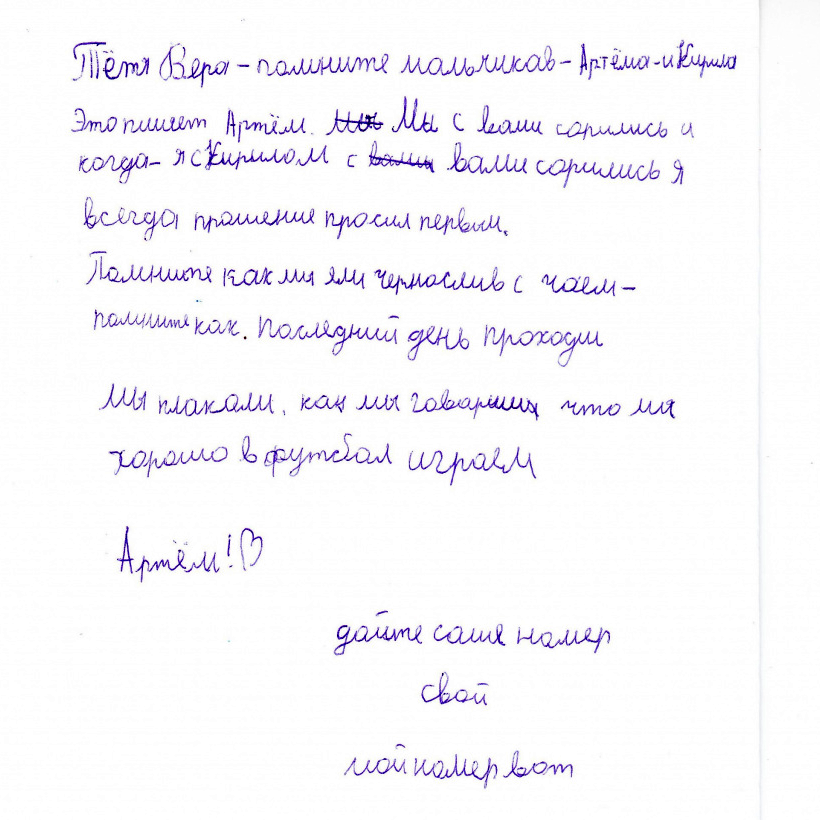 Тётя Вера - помните мальчикав - Артёма - и Кирила
Это пишет Артём. Мы с вами сорились и
когда - я с Кирилом с вами сорились я
всегда прошение просил первым.
Помните как ми яли чернослив с чаем -
помните как. Последний день проходил
мы плакали. как мы говарили что мя
хорошо в футбал играем
Артём!♡
дайте саше номер
свой
мой номер вот